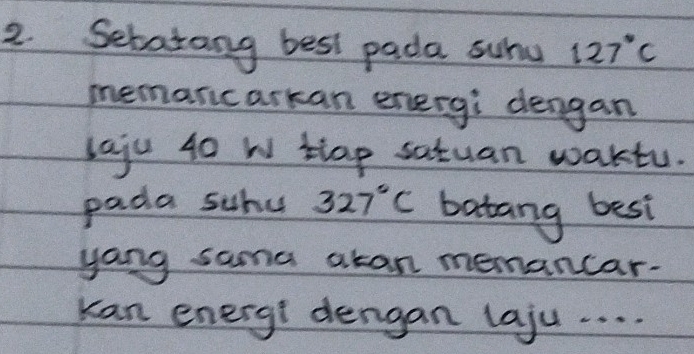 2. Sebatang besi pada suhu 127°C
memancarkan energi dengan
laju 40 W tiap satuan waktu.
pada suhu 327°C batang besi
yang sama akan memancar-
kan energi dengan laju ....